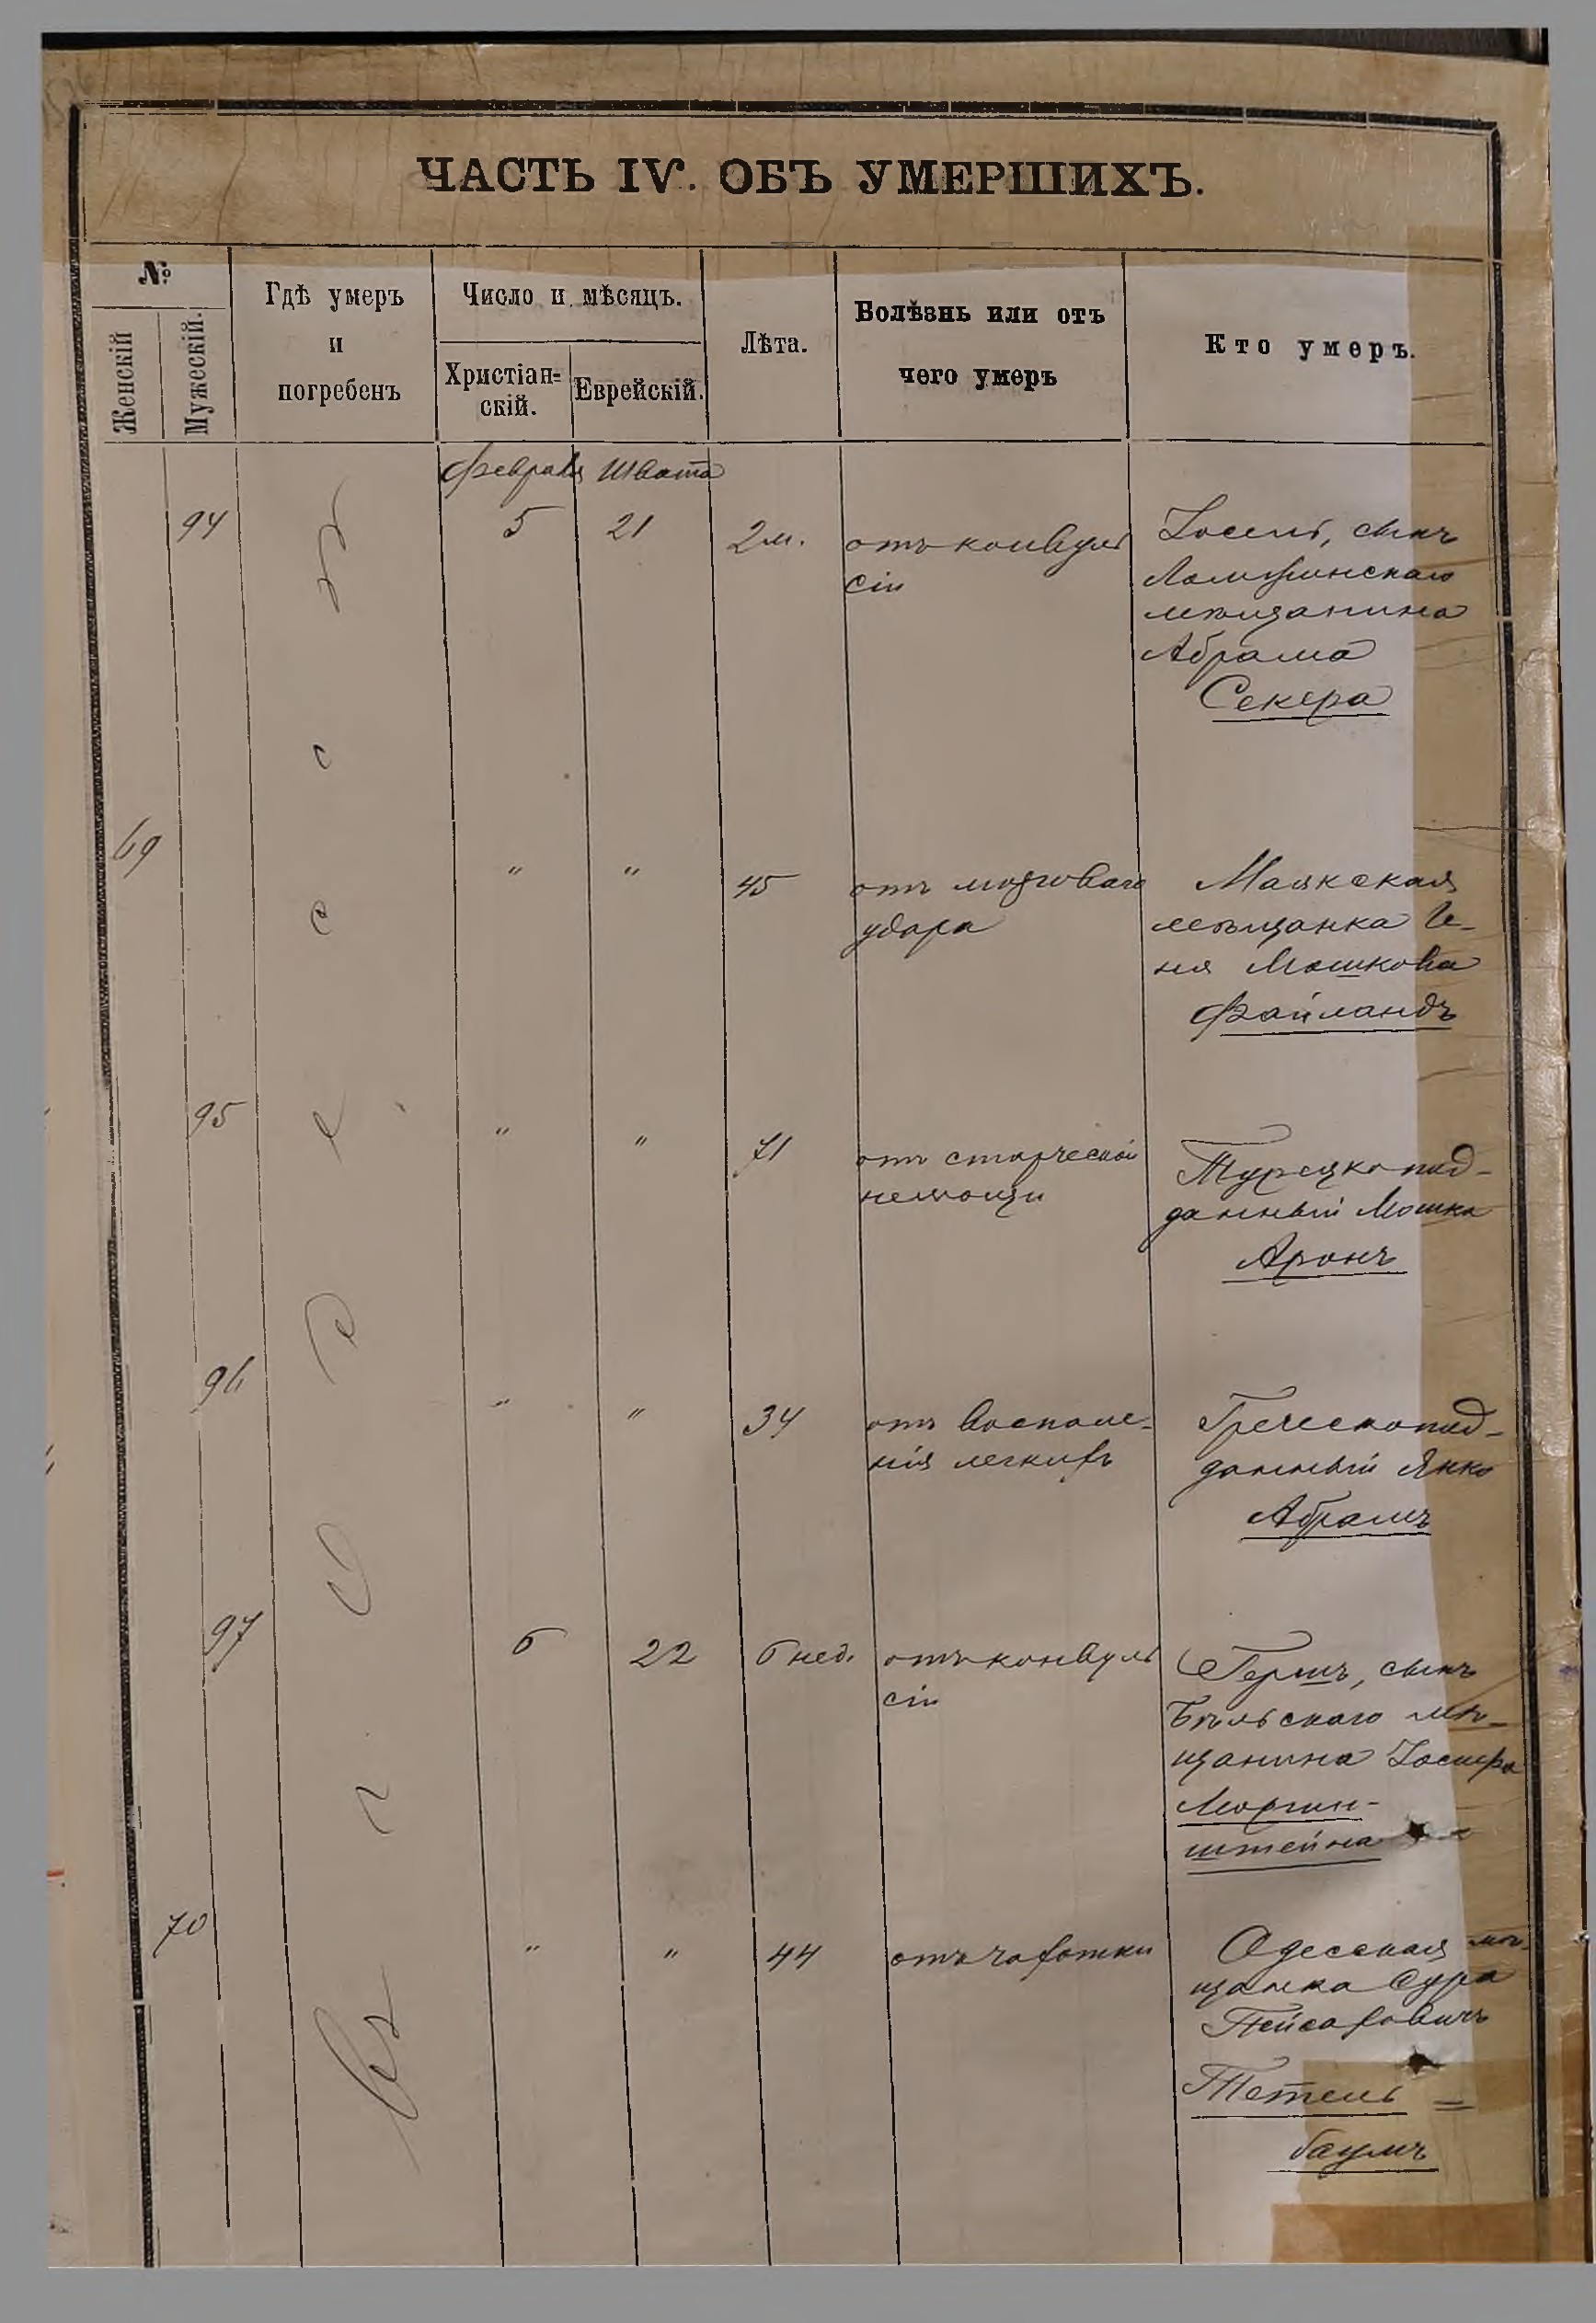 ЧАСТЬ IV. ОБЪ УМЕРШИХЪ.
№
Женскій
Мужескій.
Гдѣ умеръ
и
погребенъ
Число и мѣсяцъ.
Христіан=
скій.
Еврейскій.
Лѣта.
Болѣзнь или отъ
чего умеръ
Кто умеръ.
Въ г. Одессѣ
Февраля Швата
94 5 21 2 м. отъ конвуль
сіи
Іосель, сынъ
мѣщанина
Абрама
Секера
69 " " 45 отъ мозговаго
удара
Маякская
мѣщанка И-
ня Мошкова
Файландъ
95 " " 71 отъ старческой
немощи
Турецкопод-
данный Мошка
Аронъ
96 " " 34 отъ воспале-
нія легкихъ
Греческопод-
данный Янко
Абрамъ
97 6 22 6 нед. отъ конвуль
сіи
Гершъ, сынъ
Бѣльскаго мѣ-
щанина Іосифа
Моргин-
штейна
70 " " 44 отъ чахотки
Одесская мѣ-
щанка Сура
Пейсаховичъ
Тетель=
баумъ